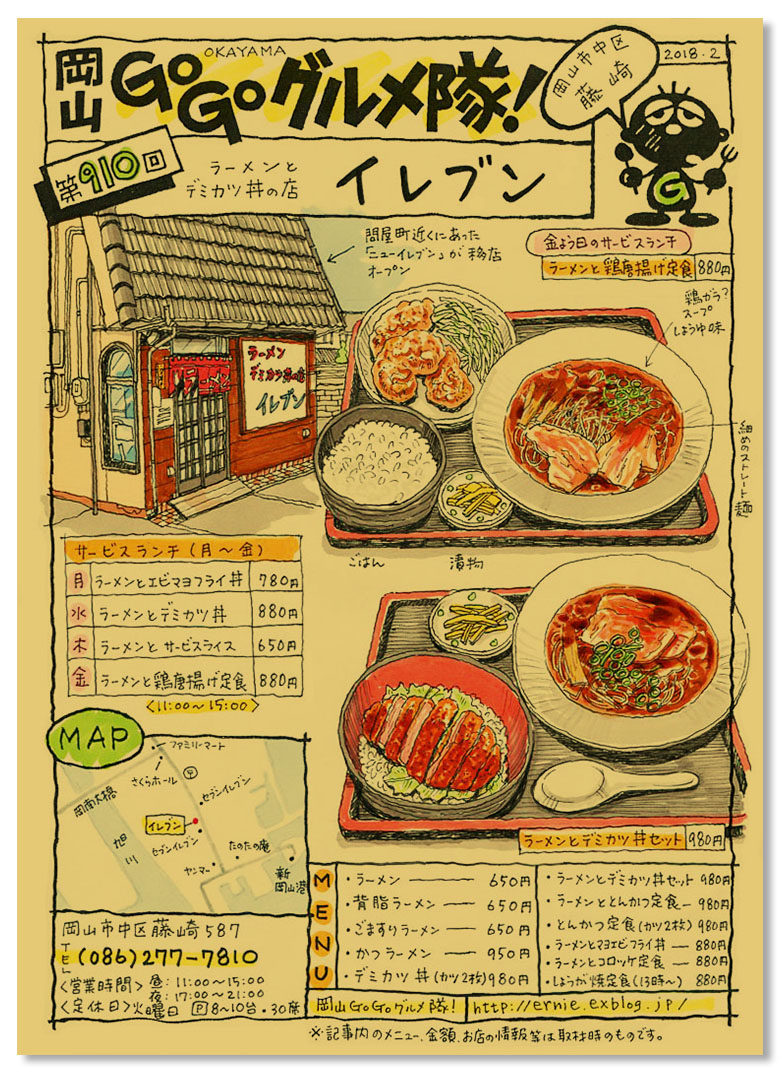 岡山
OKAYAMA
GoGoグルメ隊!
岡山市中区
藤崎
2018.2
G
第910回
ラーメンと
デミカツ丼の店
イレブン
問屋町近くにあった
「ニューイレブン」が移店
オープン
金よう日のサービスランチ
ラーメンと鶏唐揚げ定食 880円
鶏ガラ?
スープ
しょうゆ味
ラーメン
デミカツ丼の店
イレブン
ラーメン
細めのストレート麺
ごはん
漬物
サービスランチ(月〜金)
月 ラーメンとエビマヨフライ丼 780円
水 ラーメンとデミカツ丼 880円
木 ラーメンとサービスライス 650円
金 ラーメンと鶏唐揚げ定食 880円
<11:00〜15:00>
MAP
ファミリーマート
さくらホール
岡南大橋
セブンイレブン
イレブン
旭川
セブンイレブン
たのたの庵
ヤンマー
新岡山港
ラーメンとデミカツ丼セット 980円
MENU
・ラーメン 650円
・背脂ラーメン 650円
・ごますりラーメン 650円
・かつラーメン 950円
・デミカツ丼(カツ2枚) 980円
・ラーメンとデミカツ丼セット 980円
・ラーメンととんかつ定食 980円
・とんかつ定食(カツ2枚) 980円
・ラーメンとマヨエビフライ丼 880円
・ラーメンとコロッケ定食 880円
・しょうが焼定食(13時〜) 880円
岡山市中区藤崎587
TEL (086)277-7810
<営業時間> 昼:11:00〜15:00
夜:17:00〜21:00
<定休日>火曜日 P8〜10台・30席
岡山GoGoグルメ隊! http://ernie.exblog.jp/
※記事内のメニュー、金額、お店の情報等は取材時のものです。